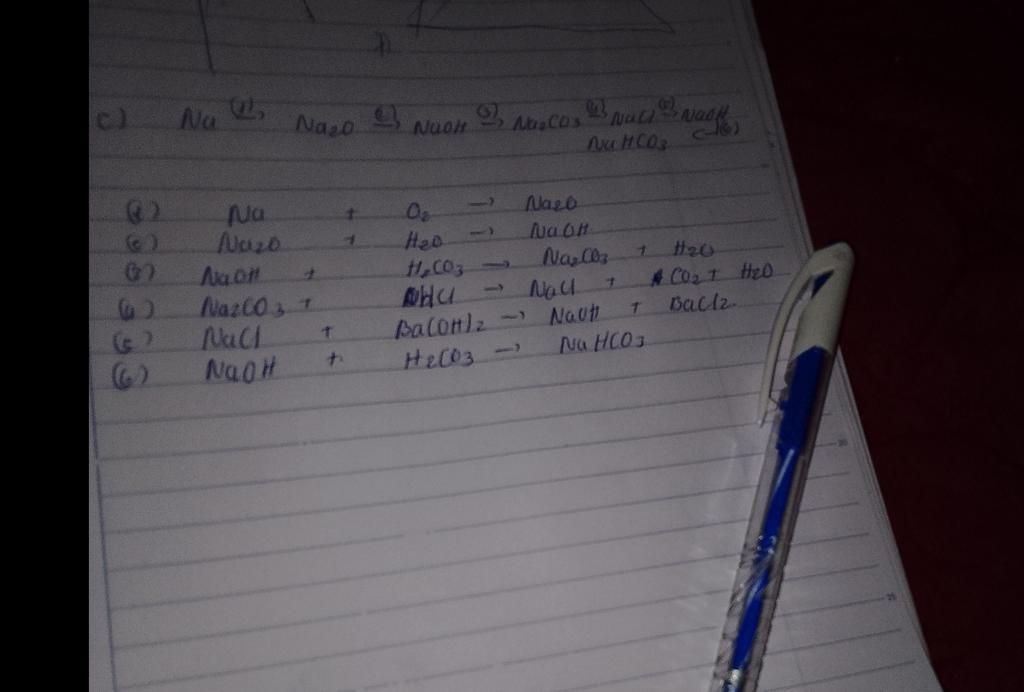 c) Na (1)→ Na2O (2)→ NaOH (3)→ Na2CO3 (4)→ NaCl (5)→ NaOH
NaHCO3 (6)
(1) Na + O2 → Na2O
(2) Na2O + H2O → NaOH
(3) NaOH + H2CO3 → Na2CO3 + H2O
(4) Na2CO3 + HCl → NaCl + CO2 + H2O
(5) NaCl + Ba(OH)2 → NaOH + BaCl2
(6) NaOH + H2CO3 → NaHCO3